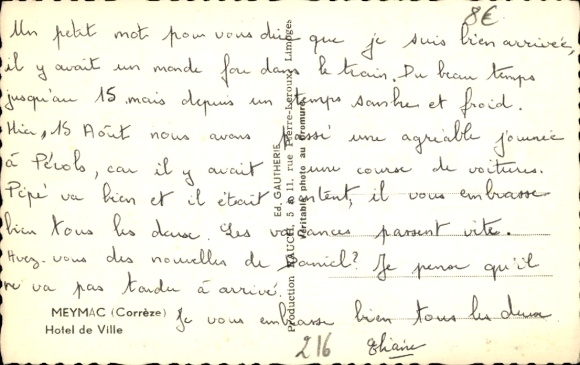 8€
Un petit mot pour vous dire que je suis bien arrivée,
il y avait un monde fou dans le train. Du beau temps
jusqu'au 15 mais depuis un temps sombre et froid.
Hier, 15 Août nous avons passé une agréable journée
à Pérols, car il y avait une course de voitures.
Pépé va bien et il était content, il vous embrasse
bien tous les deux. Les vacances passent vite.
Avez-vous des nouvelles de Daniel? Je pense qu'il
ne va pas tarder à arrivé.
Je vous embrasse bien tous les deux
Eliane
MEYMAC (Corrèze)
Hotel de Ville
216
Ed. GAUTHERIE
Production HAUCH, 5 à 11, rue Pierre-Leroux, Limoges
Véritable photo au bromure